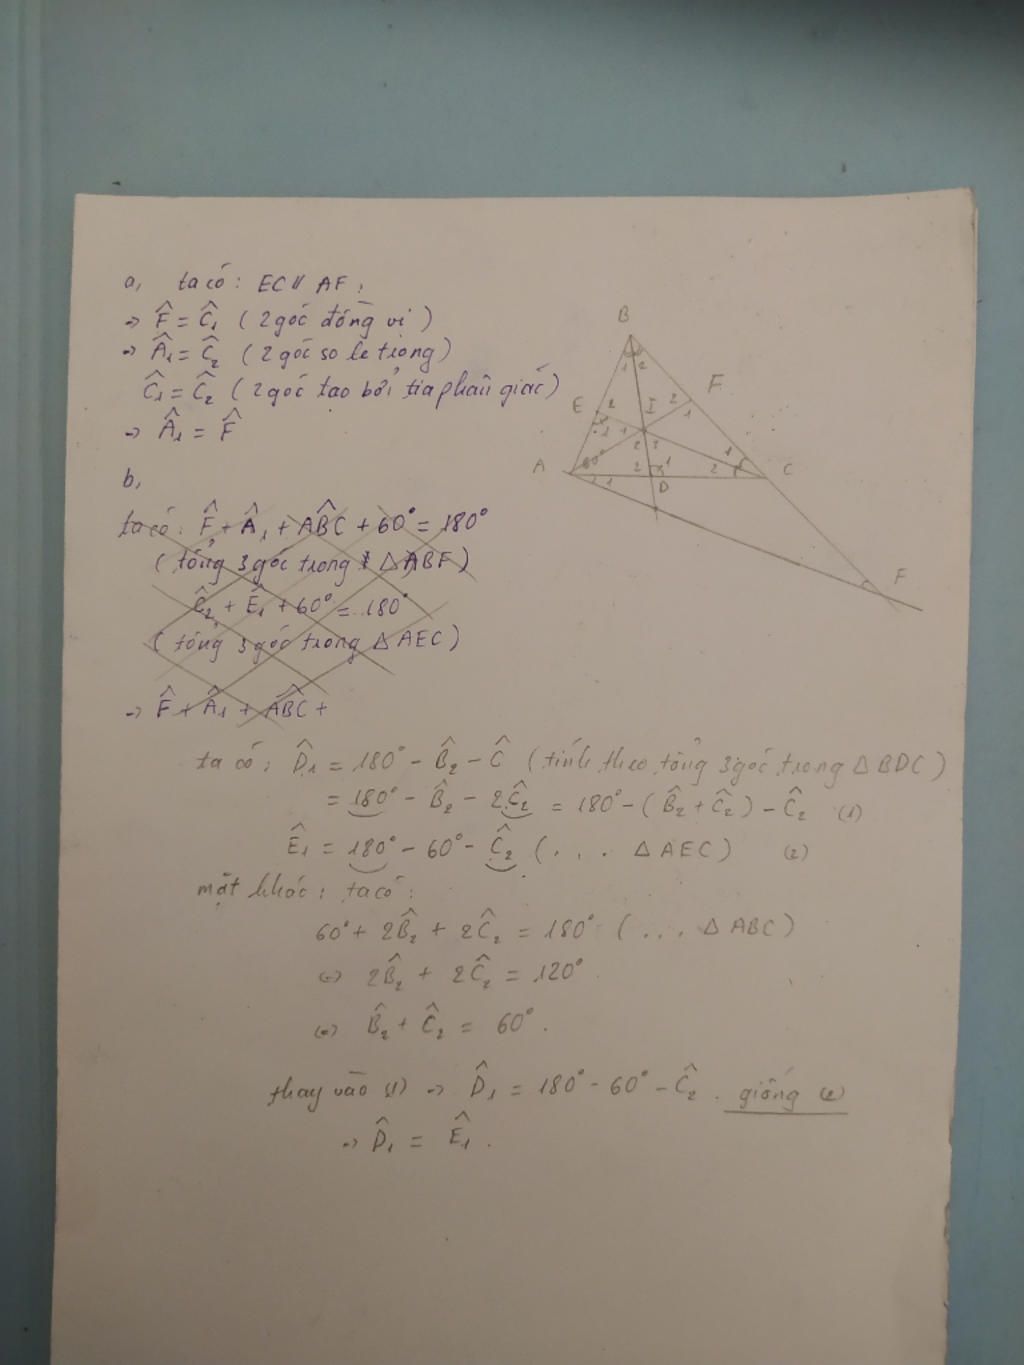 a, ta có: EC // AF.
→ F̂ = Ĉ₁ (2 góc đồng vị)
→ Â₁ = Ĉ₂ (2 góc so le trong)
Ĉ₁ = Ĉ₂ (2 góc tạo bởi tia phân giác)
→ Â₁ = F̂
b,
ta có: F̂ + Â₁ + AB̂C + 60° = 180°
(tổng 3 góc trong △ABF)
Ĉ₂ + Ê₁ + 60° = 180°
(tổng 3 góc trong △AEC)
→ F̂ + Â₁ + AB̂C +
ta có: D̂₁ = 180° - B̂₂ - Ĉ (tính theo tổng 3 góc trong △BDC)
= 180° - B̂₂ - 2Ĉ₂ = 180° - (B̂₂ + Ĉ₂) - Ĉ₂ (1)
Ê₁ = 180° - 60° - Ĉ₂ (... △AEC) (2)
mặt khác: ta có:
60° + 2B̂₂ + 2Ĉ₂ = 180° (... △ABC)
⇔ 2B̂₂ + 2Ĉ₂ = 120°
⇔ B̂₂ + Ĉ₂ = 60°.
thay vào (1) → D̂₁ = 180° - 60° - Ĉ₂. giống (2)
→ D̂₁ = Ê₁.
B
1 2
F
E 2 I 2 1
1 1 2 3 1
A 60° 2 1 2 C
1 D
F